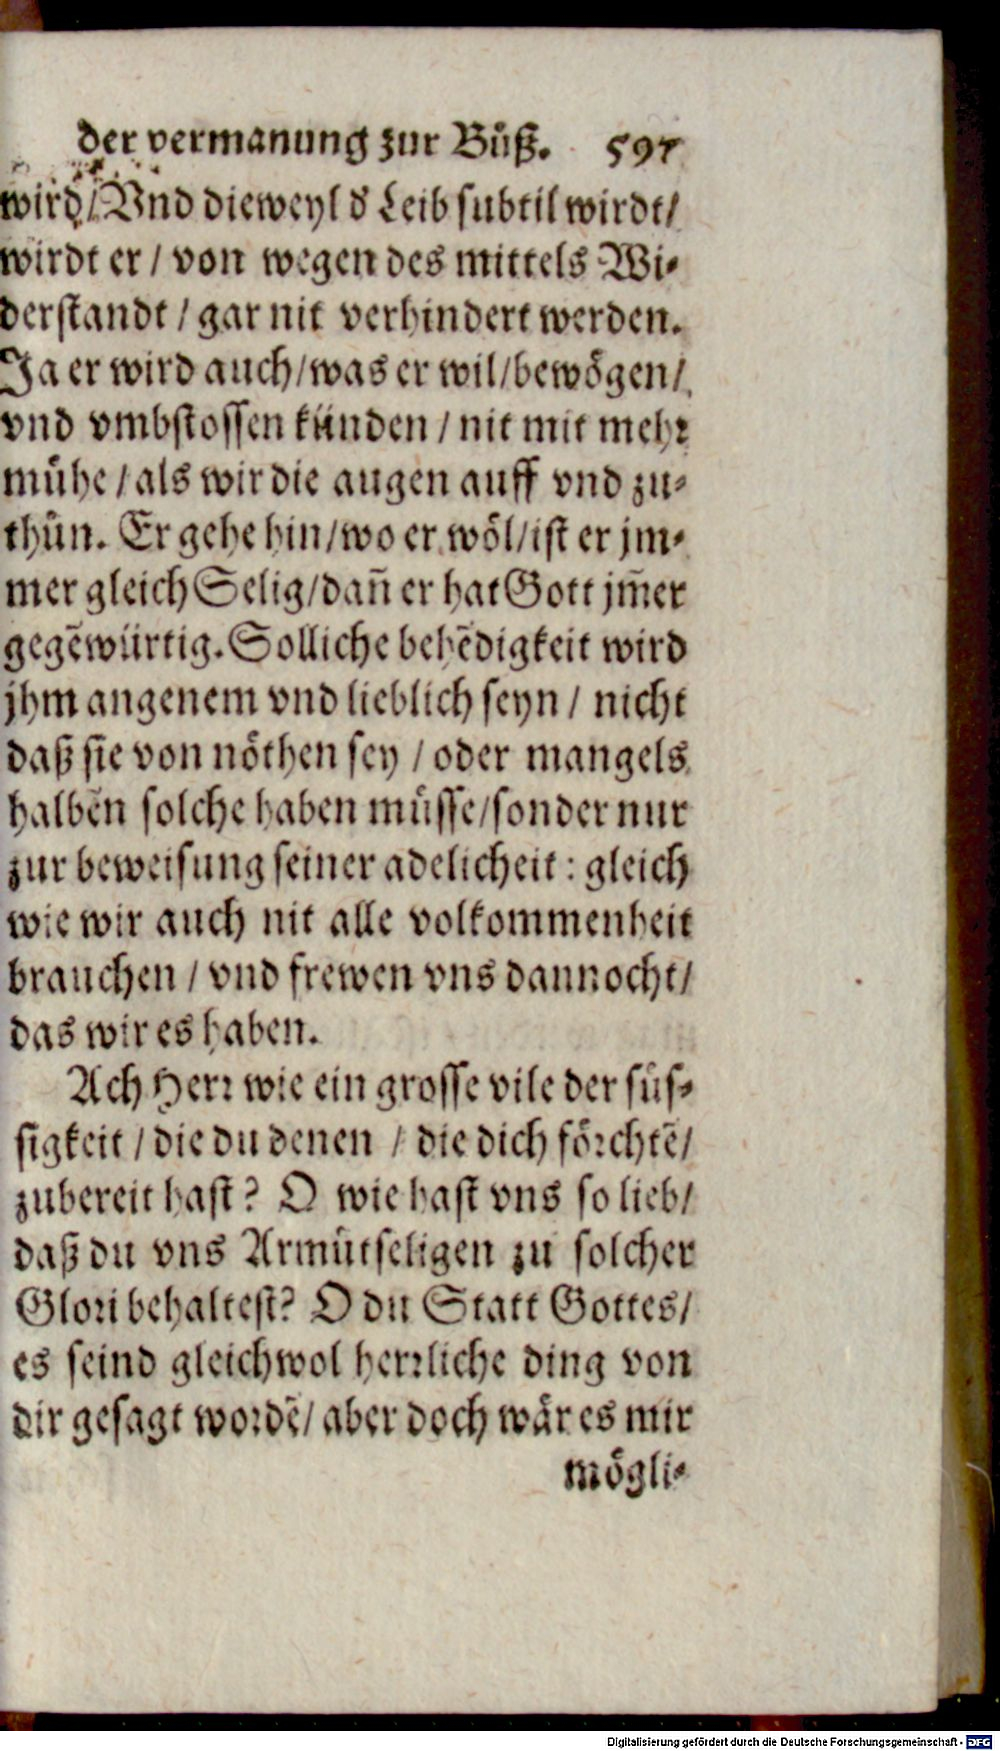 der vermanung zur Bůß. 597
wird/Vnd dieweyl d' Leib subtil wirdt/
wirdt er / von wegen des mittels Wi-
derstandt / gar nit verhindert werden.
Ja er wird auch/was er wil/bewögen/
vnd vmbstossen künden / nit mit mehr
mühe / als wir die augen auff vnd zu-
thůn. Er gehe hin/wo er wöl/ist er jm-
mer gleich Selig/dañ er hat Gott jm̃er
gegẽwürtig. Solliche behẽdigkeit wird
jhm angenem vnd lieblich seyn / nicht
daß sie von nöthen sey / oder mangels
halben solche haben müsse/sonder nur
zur beweisung seiner adelicheit : gleich
wie wir auch nit alle volkommenheit
brauchen / vnd frewen vns dannocht/
das wir es haben.
Ach Herr wie ein grosse vile der süs-
sigkeit / die du denen / die dich förchtẽ/
zubereit hast? O wie hast vns so lieb/
daß du vns Armůtseligen zu solcher
Glori behaltest? O du Statt Gottes/
es seind gleichwol herrliche ding von
dir gesagt wordẽ/ aber doch wär es mir
mögli-
Digitalisierung gefördert durch die Deutsche Forschungsgemeinschaft - DFG